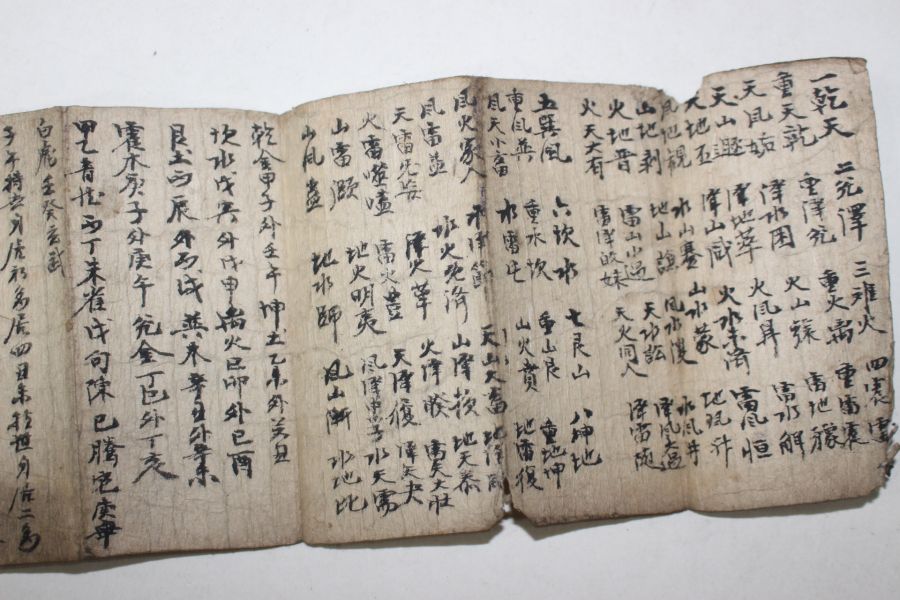 一乾天 二兌澤 三离火 四震雷
重天乾 重澤兌 重火离 重雷震
天風姤 澤水困 火山旅 雷地豫
天山遯 澤地萃 火風鼎 雷水解
天地否 澤山咸 火水未濟 雷風恒
風地觀 水山蹇 山水蒙 地風升
山地剝 地山謙 風水渙 水風井
火地晉 雷山小過 天水訟 澤風大過
火天大有 雷澤歸妹 天火同人 澤雷隨
五巽風 六坎水 七艮山 八坤地
重風巽 重水坎 重山艮 重地坤
風天小畜 水雷屯 山火賁 地雷復
風火家人 水澤節 天山大畜 地澤臨
風雷益 水火旣濟 山澤損 地天泰
天雷无妄 澤火革 火澤睽 雷天大壯
火雷噬嗑 雷火豊 天澤履 澤天夬
山雷頤 地火明夷 風澤中孚 水天需
山風蠱 地水師 風山漸 水地比
乾金甲子外壬午 坤土乙未外癸丑
坎水戊寅外戊申 离火己卯外己酉
艮土丙辰外丙戌 巽木辛丑外辛未
震木庚子外庚午 兌金丁巳外丁亥
甲乙青龍丙丁朱雀戊句陳己騰蛇庚辛
白虎壬癸玄武
子午持世